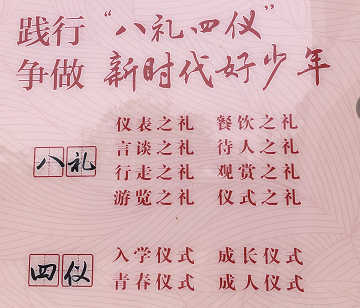 践行“八礼四仪”
争做 新时代好少年
八礼
仪表之礼 餐饮之礼
言谈之礼 待人之礼
行走之礼 观赏之礼
游览之礼 仪式之礼
四仪
入学仪式 成长仪式
青春仪式 成人仪式